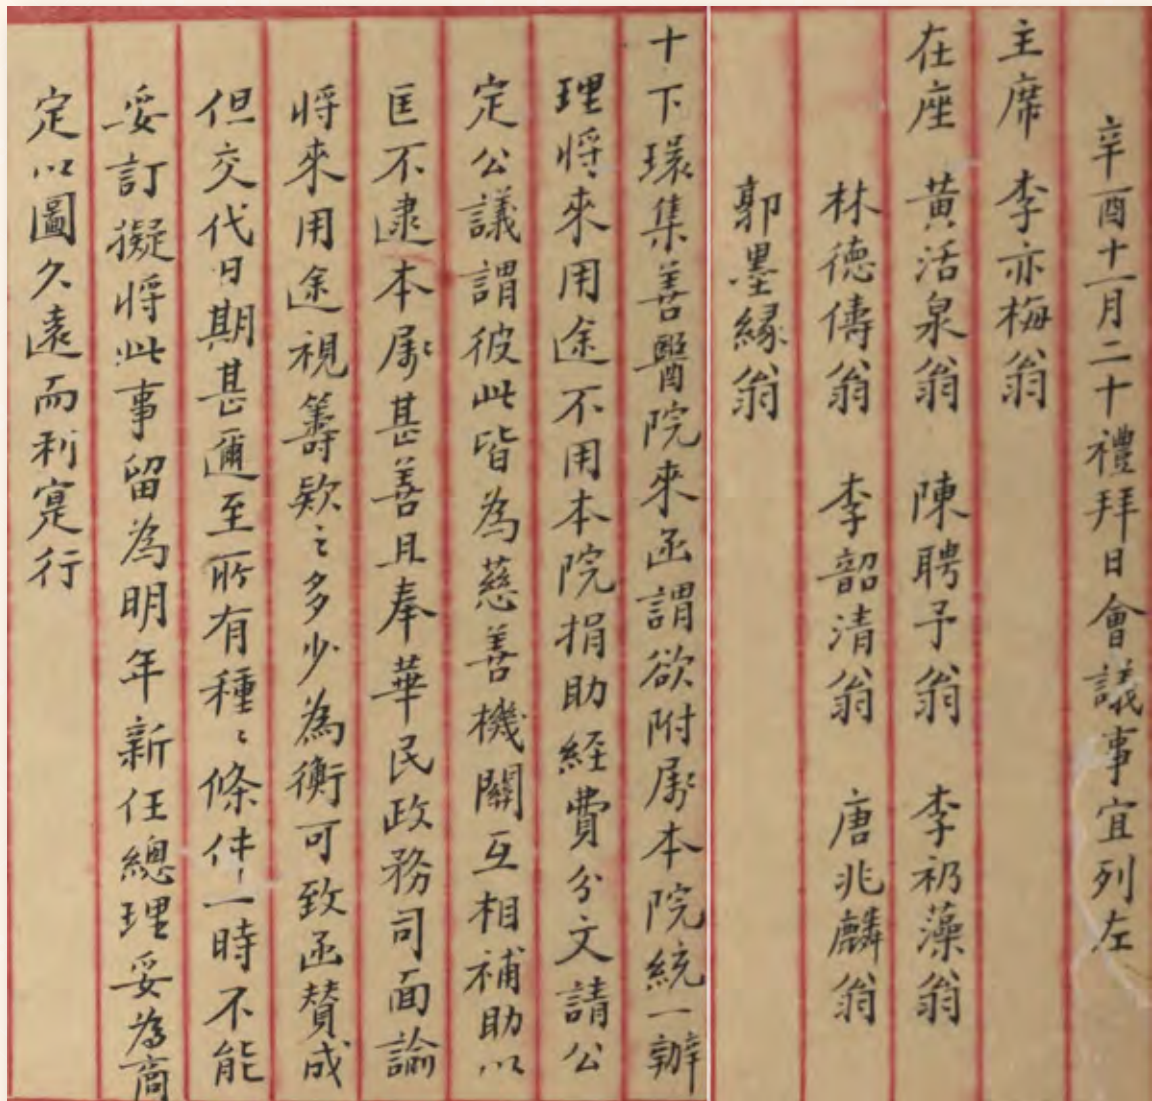 辛酉十一月二十禮拜日會議事宜列左
主席 李亦梅翁
在座 黃活泉翁 陳聘予翁 李礽藻翁
林德儔翁 李韶清翁 唐兆麟翁
郭墨緣翁
十下環集善醫院來函謂欲附屬本院統一辦
理將來用途不用本院捐助經費分文請公
定公議謂彼此皆為慈善機關互相補助以
匡不逮本屬甚善且奉華民政務司面諭
將來用途視籌欵之多少為衡可致函贊成
但交代日期甚邇至所有種々條件一時不能
妥訂擬將此事留為明年新任總理妥為商
定以圖久遠而利寔行